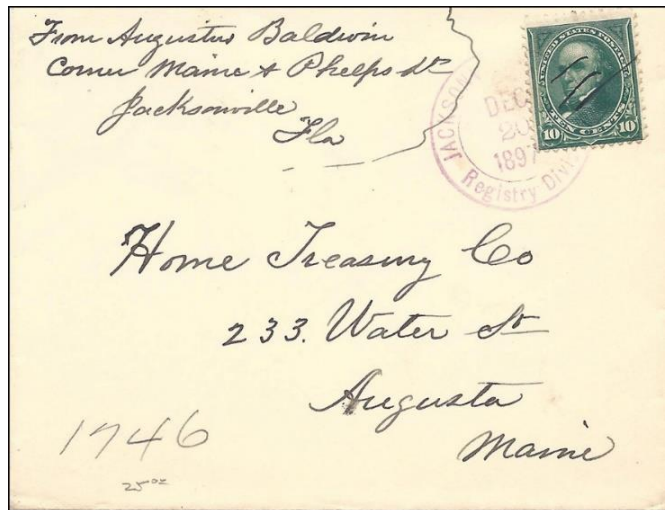 From Augustus Baldwin
Corner Maine & Phelps St
Jacksonville
Fla
UNITED STATES POSTAGE
10 TEN CENTS 10
JACKSON
DEC
20
1897
Registry Div.
Home Treasury Co
233. Water St
Augusta
Maine
1746
25